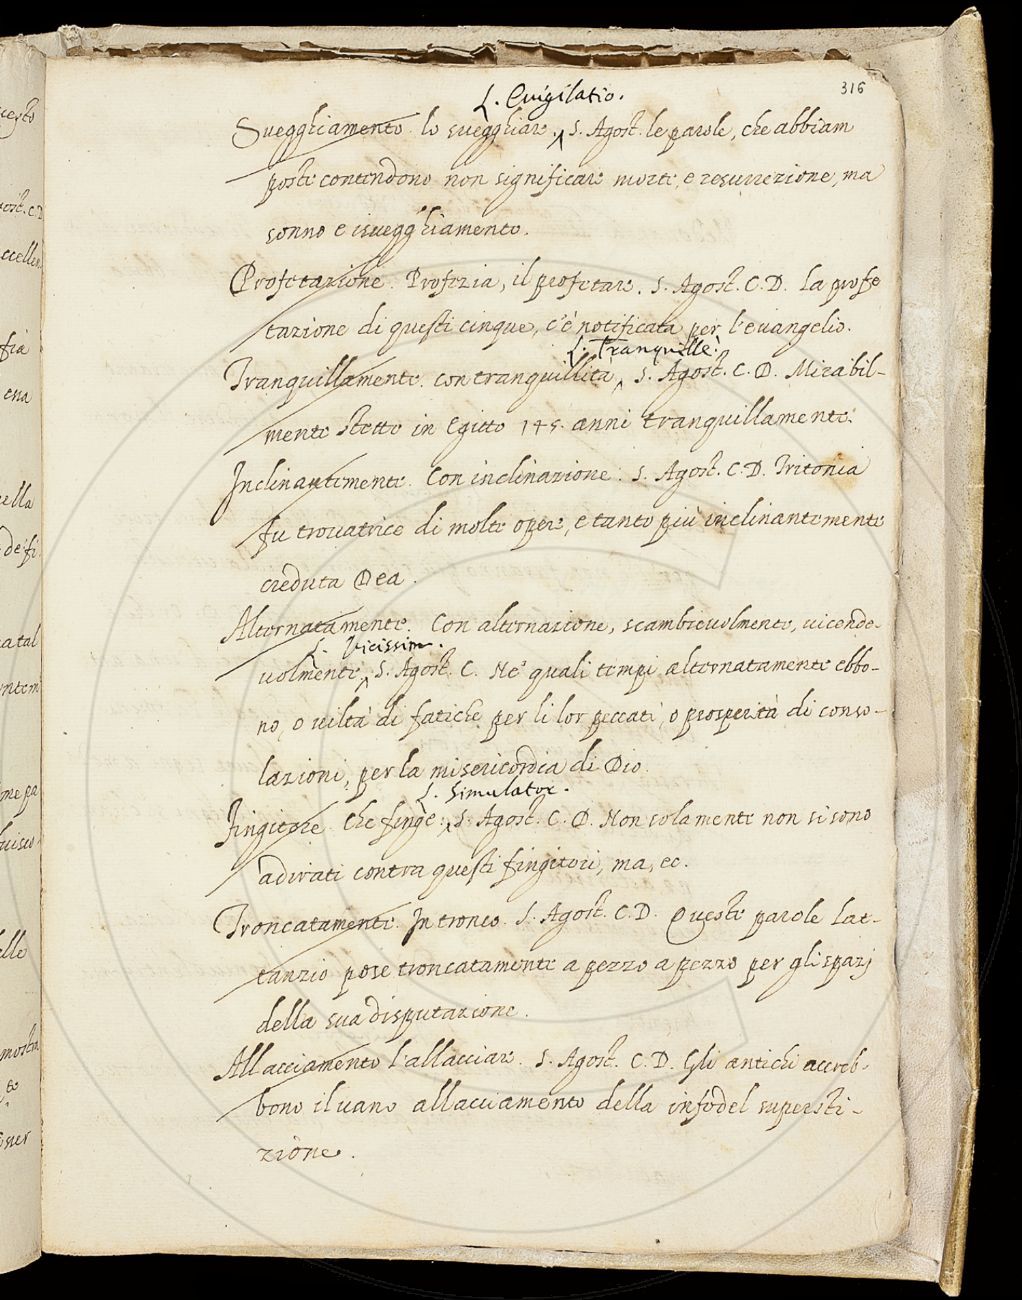 316
L. Evigilatio.
Svegghiamento. lo svegghiare. S. Agost. le parole, che abbiam
poste contendono non significare morte, e resurrezione, ma
sonno e isvegghiamento.
Profetazione. Profezia, il profetare. S. Agost. C. D. La profe
tazione di questi cinque, c'è notificata per l'evangelio.
L. Tranquillè.
Tranquillamente. con tranquillità, S. Agost. C. D. Mirabil-
mente stette in Egitto 145. anni tranquillamente.
Inclinantemente. Con inclinazione. S. Agost. C. D. Tritonia
fu trovatrice di molte opere, e tanto più inclinantemente
creduta Dea.
Alternatamente. Con alternazione, scambievolmente, vicende-
L. Vicissim.
volmente, S. Agost. C. Ne' quali tempi alternatamente ebbo-
no, o viltà di fatiche per li lor peccati, o prosperità di conso-
lazioni, per la misericordia di Dio.
L. Simulator.
Fingitore. Che finge. S. Agost. C. D. Non solamente non si sono
adirati contra questi fingitori, ma, ec.
Troncatamente. In tronco. S. Agost. C. D. Queste parole Lat-
tanzio pose troncatamente a pezzo a pezzo per gli spazj
della sua disputazione.
Allacciamento l'allacciare. S. Agost. C. D. Gli antichi accreb-
bono il vano allacciamento della infedel supersti-
zione.